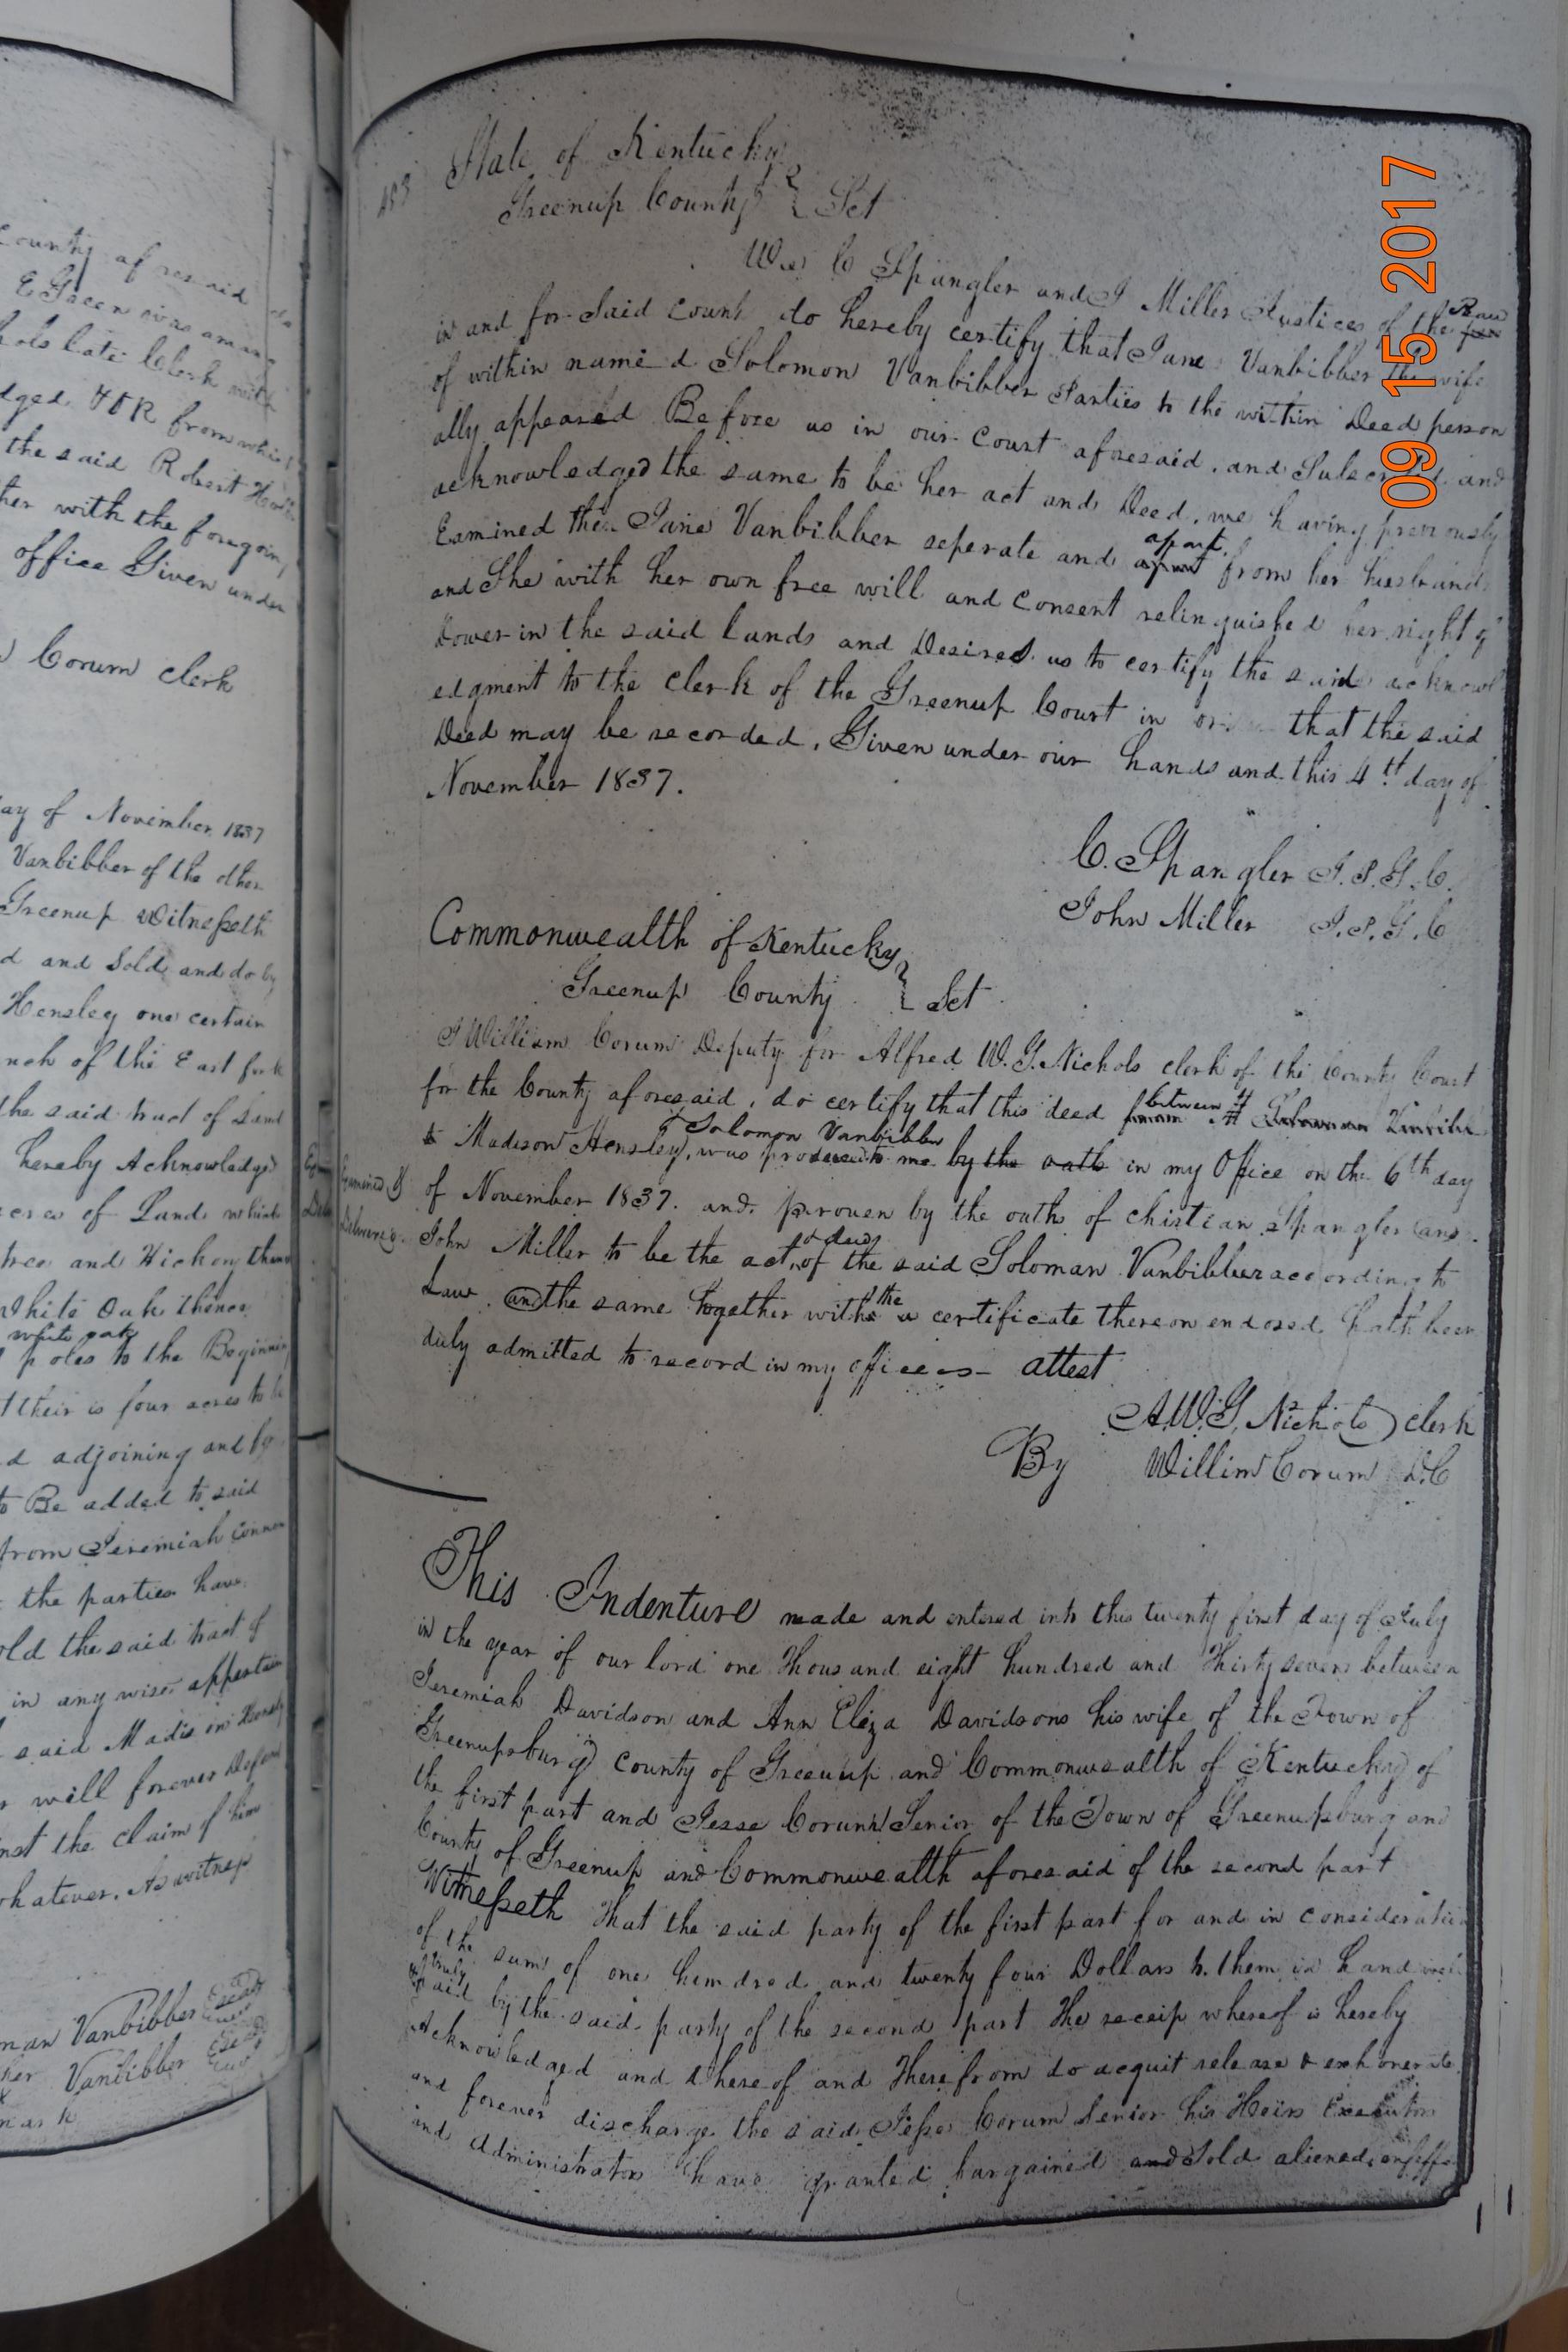 County aforesaid do
E Green
late Clerk with
from which
the said Robert
with the foregoin
office Given under
Corum clerk
ay of November 1837
Vanbibber of the other
Greenup Witnesseth
d and Sold and do by
Hensley one certain
nch of the East fork
the said tract of Land
hereby Acknowledged
acres of Land which
tree and Hickory thence
White Oak thence
white oak
poles to the Beginnin
their is four acres to
d adjoining and
to Be added to said
from Jeremiah
the parties have
old the said tract of
in any wise appertain
said Madison
will forever Defend
nst the claim of him
whatever. As witness
man Vanbibber Seal
her Vanbibber Seal
x
mark
483
State of Kentucky
Greenup County } Sct
We C Spangler and J Miller Justices of the Peace
in and for said Count do hereby certify that Jane Vanbibber the wife
of within name d Solomon Vanbibber Parties to the within Deed person
ally appeared Before us in our Court aforesaid. and and
acknowledged the same to be her act and Deed. we having previously
Examined the Jane Vanbibber seperate and apart from her husband
and She with her own free will and consent relinquished her right of
Dower in the said lands and Desired us to certify the said acknowl
edgment to the clerk of the Greenup Court in that the said
Deed may be recorded. Given under our hands and this 4th day of
November 1837.
C. Spangler J.P.G.C.
John Miller J.P.G.C
Commonwealth of Kentucky
Greenup County } Sct
I William Corum Deputy for Alfred W. G. Nichols clerk of the County Court
for the County aforesaid, do certify that this deed between
to Madison Hensley, & Solomon Vanbibber was produced to me by the oath in my Office on the 6th day
Examined &
Delivered
of November 1837. and proven by the oaths of Chistian Spangler and
John Miller to be the act & deed of the said Soloman Vanbibber according to
Law. and the same together with the a certificate thereon endosed hath been
duly admitted to record in my offices - attest
A.W.G. Nichols clerk
By Willim Corum D.C
This Indenture made and entered into this twenty first day of July
in the year of our lord one thousand eight hundred and Thirty seven between
Jeremiah Davidson and Ann Eliza Davidsons his wife of the Town of
Greenupsburg County of Greenup and Commonwealth of Kentucky of
the first part and Jesse Corum Senior of the Town of Greenupsburg and
County of Greenup and Commonwealth aforesaid of the second part
Witnesseth That the said party of the first part for and in consideratio
of the sum of one hundred and twenty four Dollars to them in hand well
& truly paid by the said party of the second part the receip whereof is hereby
Acknowledged and thereof and therefrom do acquit release & exhonerate
and forever discharge the said Jesse Corum Senior his Heirs Executors
and Administrators have granted bargained and Sold aliened enfeffe
09 15 2017